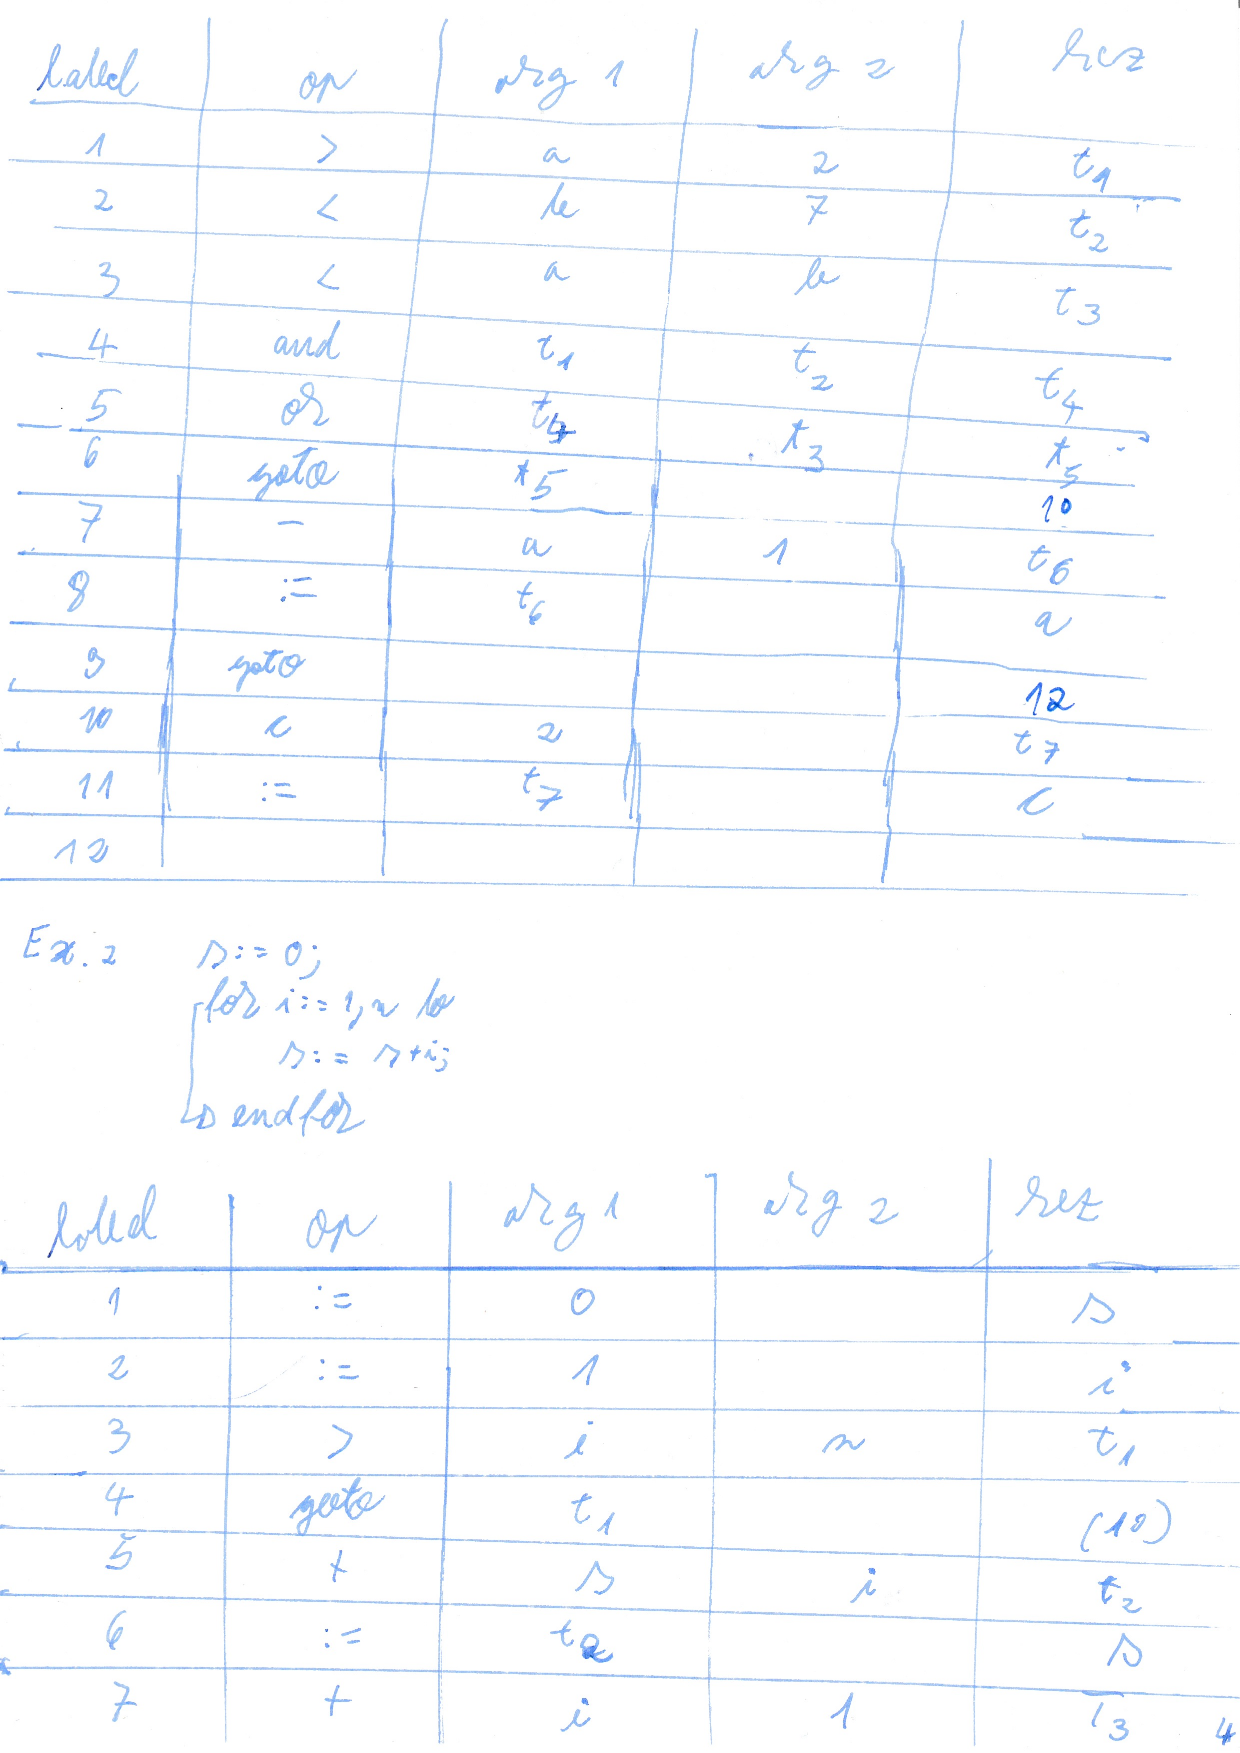 label op arg 1 arg 2 rez
1 > a 2 t1
2 < b 7 t2
3 < a b t3
4 and t1 t2 t4
5 or t4 t3 t5
6 goto t5 10
7 - a 1 t6
8 := t6 a
9 goto 12
10 c 2 t7
11 := t7 c
12
Ex. 2 s := 0;
for i := 1, n do
s := s+i;
endfor
label op arg 1 arg 2 rez
1 := 0 s
2 := 1 i
3 > i n t1
4 goto t1 (10)
5 + s i t2
6 := t2 s
7 + i 1 T3
4